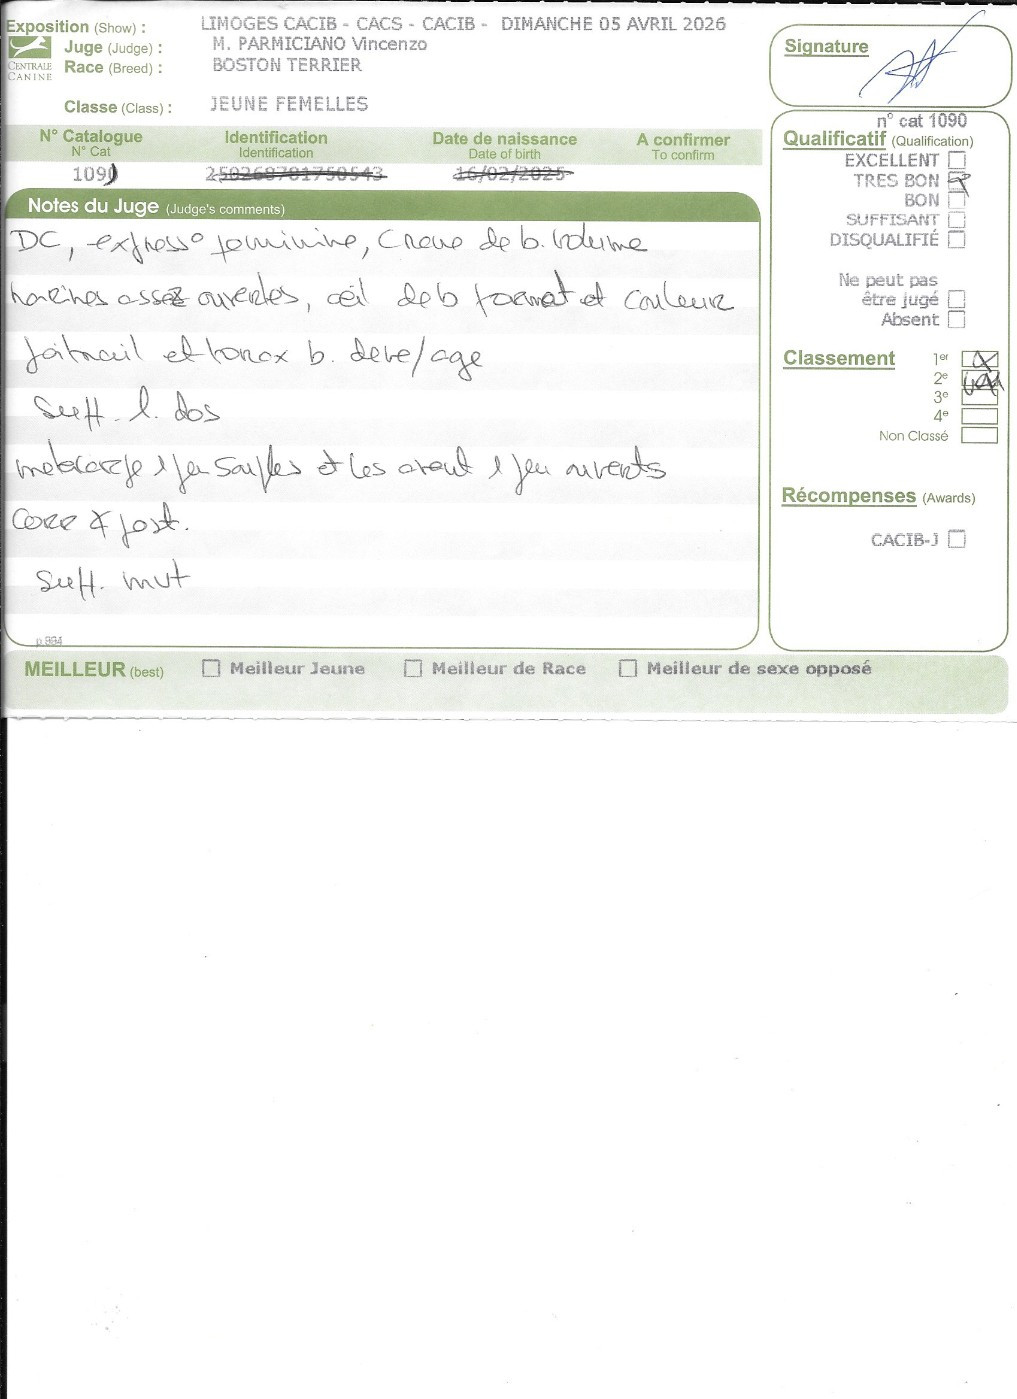 Exposition (Show) : LIMOGES CACIB - CACS - CACIB - DIMANCHE 05 AVRIL 2026
Juge (Judge) : M. PARMICIANO Vincenzo
Race (Breed) : BOSTON TERRIER
CENTRALE
CANINE
Classe (Class) : JEUNE FEMELLES
Signature
N° Catalogue Identification Date de naissance A confirmer
N° Cat Identification Date of birth To confirm
109 250268781750543 16/02/2025
n° cat 1090
Qualificatif (Qualification)
EXCELLENT
TRES BON
BON
SUFFISANT
DISQUALIFIÉ
Ne peut pas
être jugé
Absent
Classement 1er X
2e
3e
4e
Non Classé
Récompenses (Awards)
CACIB-J
Notes du Juge (Judge's comments)
DC, express° feminine, Crane de b. volume
narines assez ouvertes, œil de b format et couleur
poitrail et torax b. deve/age
Suff. l. dos
metacarpe 1 peu souples et les avant 1 peu ouverts
Corr post.
Suff. mvt
p 884
MEILLEUR (best) Meilleur Jeune Meilleur de Race Meilleur de sexe opposé